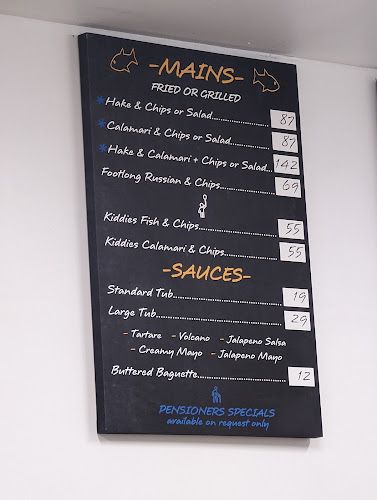 -MAINS-
FRIED OR GRILLED
*Hake & Chips or Salad 87
*Calamari & Chips or Salad 87
*Hake & Calamari + Chips or Salad 142
Footlong Russian & Chips 69
Kiddies Fish & Chips 55
Kiddies Calamari & Chips 55
-SAUCES-
Standard Tub 19
Large Tub 29
- Tartare - Volcano - Jalapeno Salsa
- Creamy Mayo - Jalapeno Mayo
Buttered Baguette 12
PENSIONERS SPECIALS
available on request only